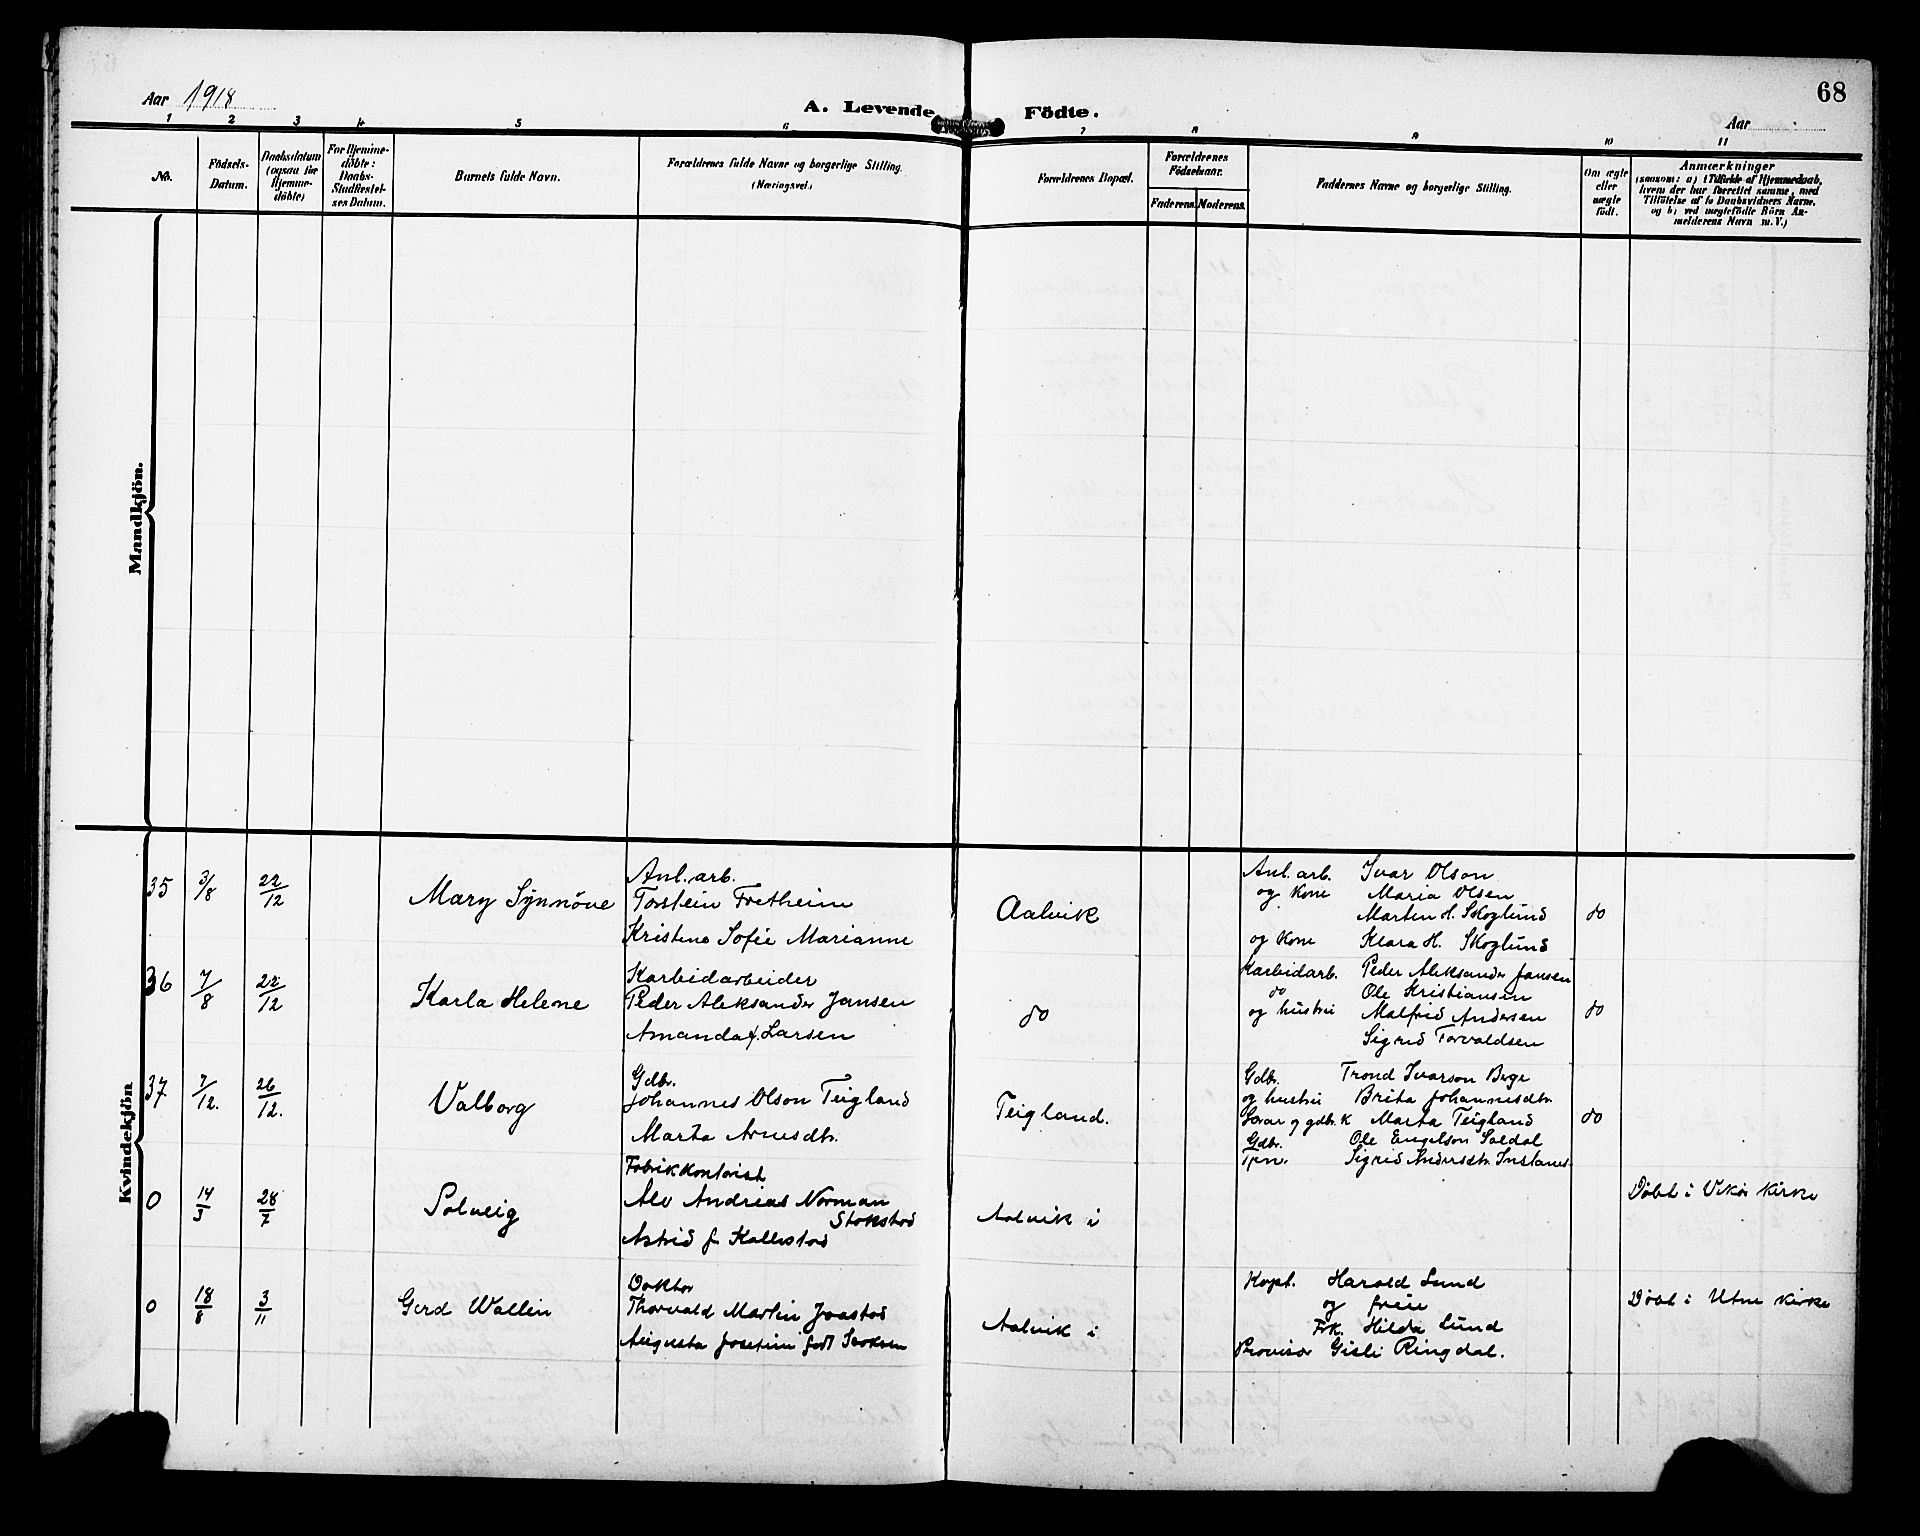 68
Aar 1918
A. Levende Födte.
Aar
1 2 3 4 5 6 7 8 9 10 11
No.
Födsels-Datum.
Daabsdatum (ogsaa for Hjemme-döbte)
For Hjemme-döbte: Daabs-Stadfæstel-ses Datum.
Barnets fulde Navn.
Forældrenes fulde Navne og borgerlige Stilling.
(Næringsvei.)
Forældrenes Bopæl.
Forældrenes Födselsaar.
Faderens. Moderens.
Faddernes Navne og borgerlige Stilling.
Om ægte eller uægte födt.
Anmærkninger
(saasom: a) i Tilfælde af Hjemmedaab,
hvem der har forrettet samme, med
Tilföielse af to Daabsvidners Navne,
og b) ved uægtefödte Börn An-
melderens Navn m. V.)
Mandkjön.
Kvindekjön
35 3/8 22/12 Mary Synnöve
Anl. arb.
Torstein Fretheim
Kristine Sofie Marianne
Aalvik
Anl. arb. Ivar Olson
og Kone Maria Olsen
Martin H. Skoglund
og Kone Klara H. Skoglund
do
36 7/8 22/12 Karla Helene
Karbidarbeider
Peder Aleksander Jansen
Amanda f. Larsen
do
Karbidarb. Peder Aleksander Jansen
do Ole Kristiansen
og hustru Malfrid Andersen
Sigrid Torvaldsen
do
37 7/12. 26/12. Valborg
Gdbr.
Johannes Olson Teigland
Marta Arnesdtr.
Teigland.
Gdbr. Trond Ivarson Berge
og hustru Brita Johannesdtr.
og gdbr. K Marta Teigland
Gdbr. Ole Engelson Soldal
Tjen. Sigrid Andersdtr. Instanes
do
0 14/3 28/7 Solveig
Fabrikkontorist
Alv Andreas Norman
Stokstad
Astrid f Kallestad
Aalvik i
Döbt i Vikör Kirke
0 18/8 3/11 Gerd Wallin
Doktor
Thorvald Martin Joastad
Augusta Josefine födt
Aalvik i
Kapt. Harald Lund
og frue
Frk. Hilda Lund
Provisor Gisli Ringdal.
Döbt i Utne Kirke